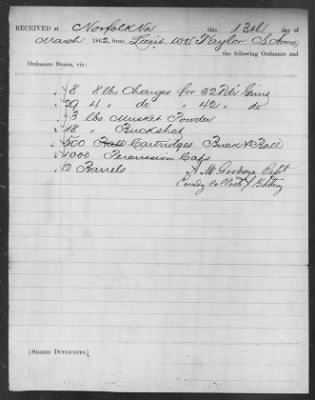 RECEIVED at Norfolk Va this 13th day of
March 1862 from Lieut. WW Taylor C.S. Army the following Ordnance and
Ordnance Stores, viz:
8 8 lbs Charges for 32 Pdr Guns
29 4 " do " 42 " do
3 lbs Musket Powder
18 " Buckshot
500 Cartridges Buck & Ball
1000 Percussion Caps
2 Barrels
Comdg
(SIGNED DUPLICATES.)